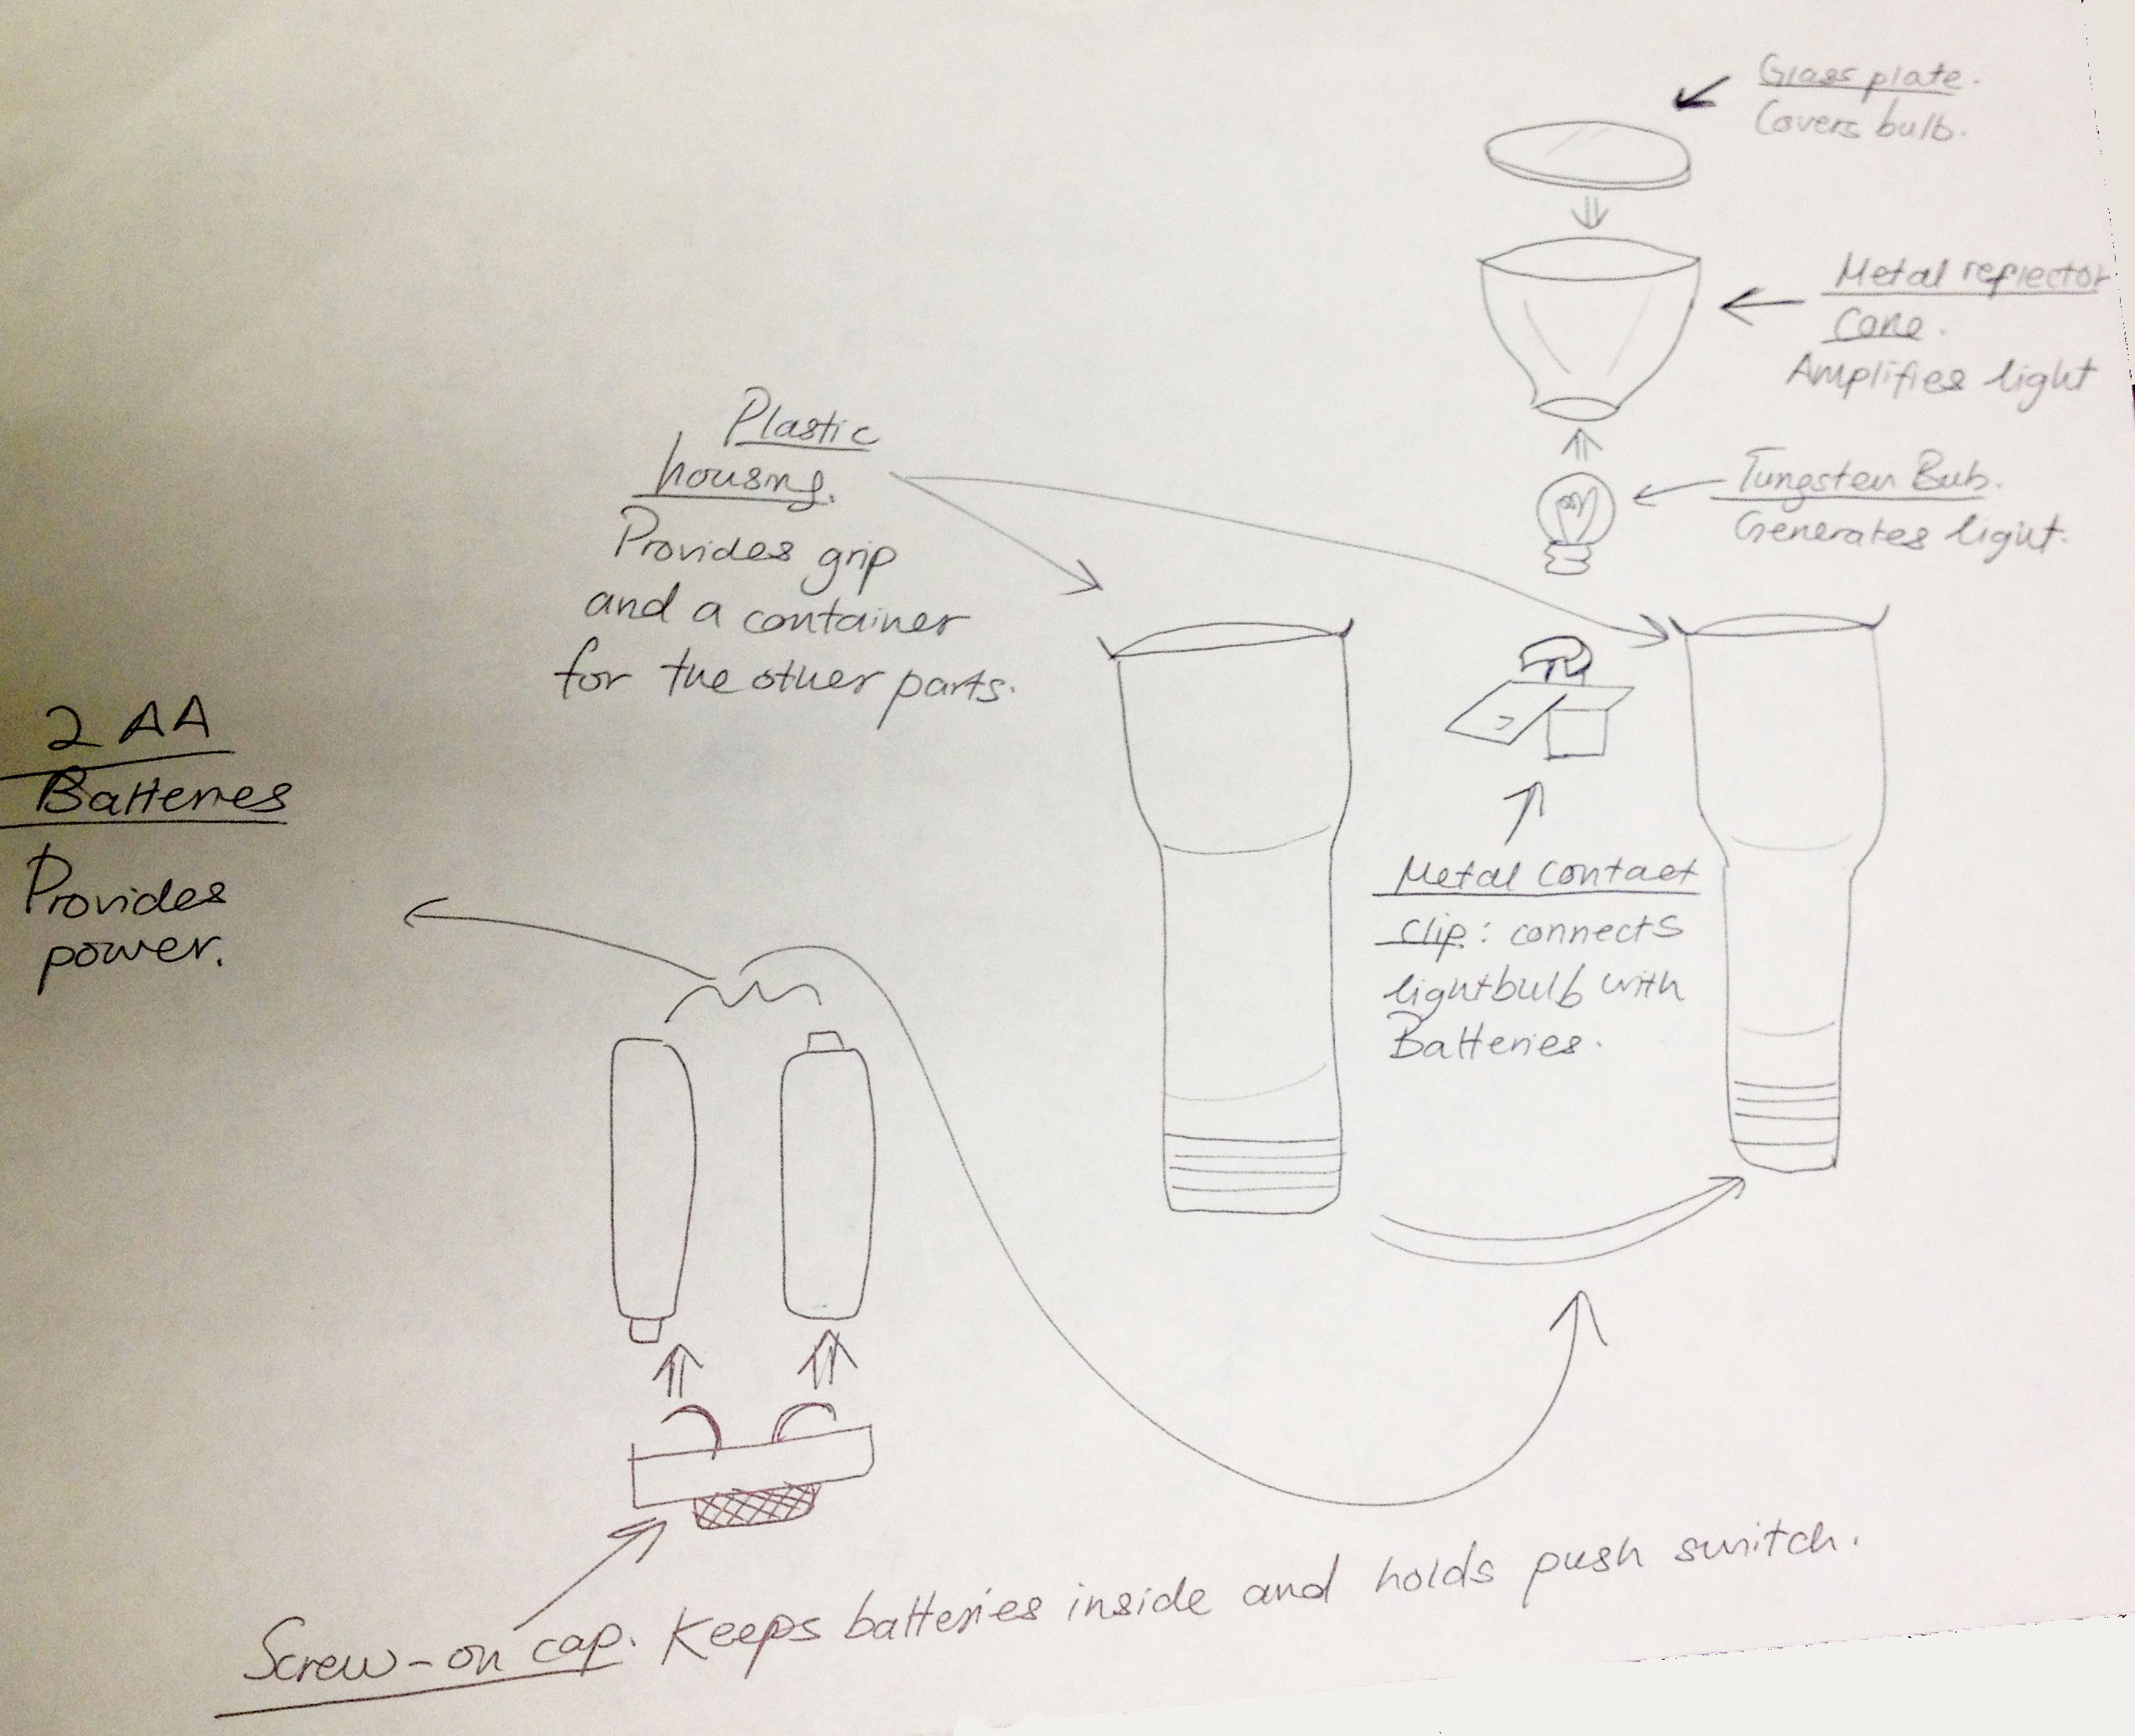 Glass plate.
Covers bulb.
Metal reflector
Cone.
Amplifies light
Tungsten Bub.
Generates light.
Plastic
housing.
Provides grip
and a container
for the other parts.
2 AA
Batteries
Provides
power.
Metal contact
clip: connects
lightbulb with
Batteries.
Screw-on cap. Keeps batteries inside and holds push switch.